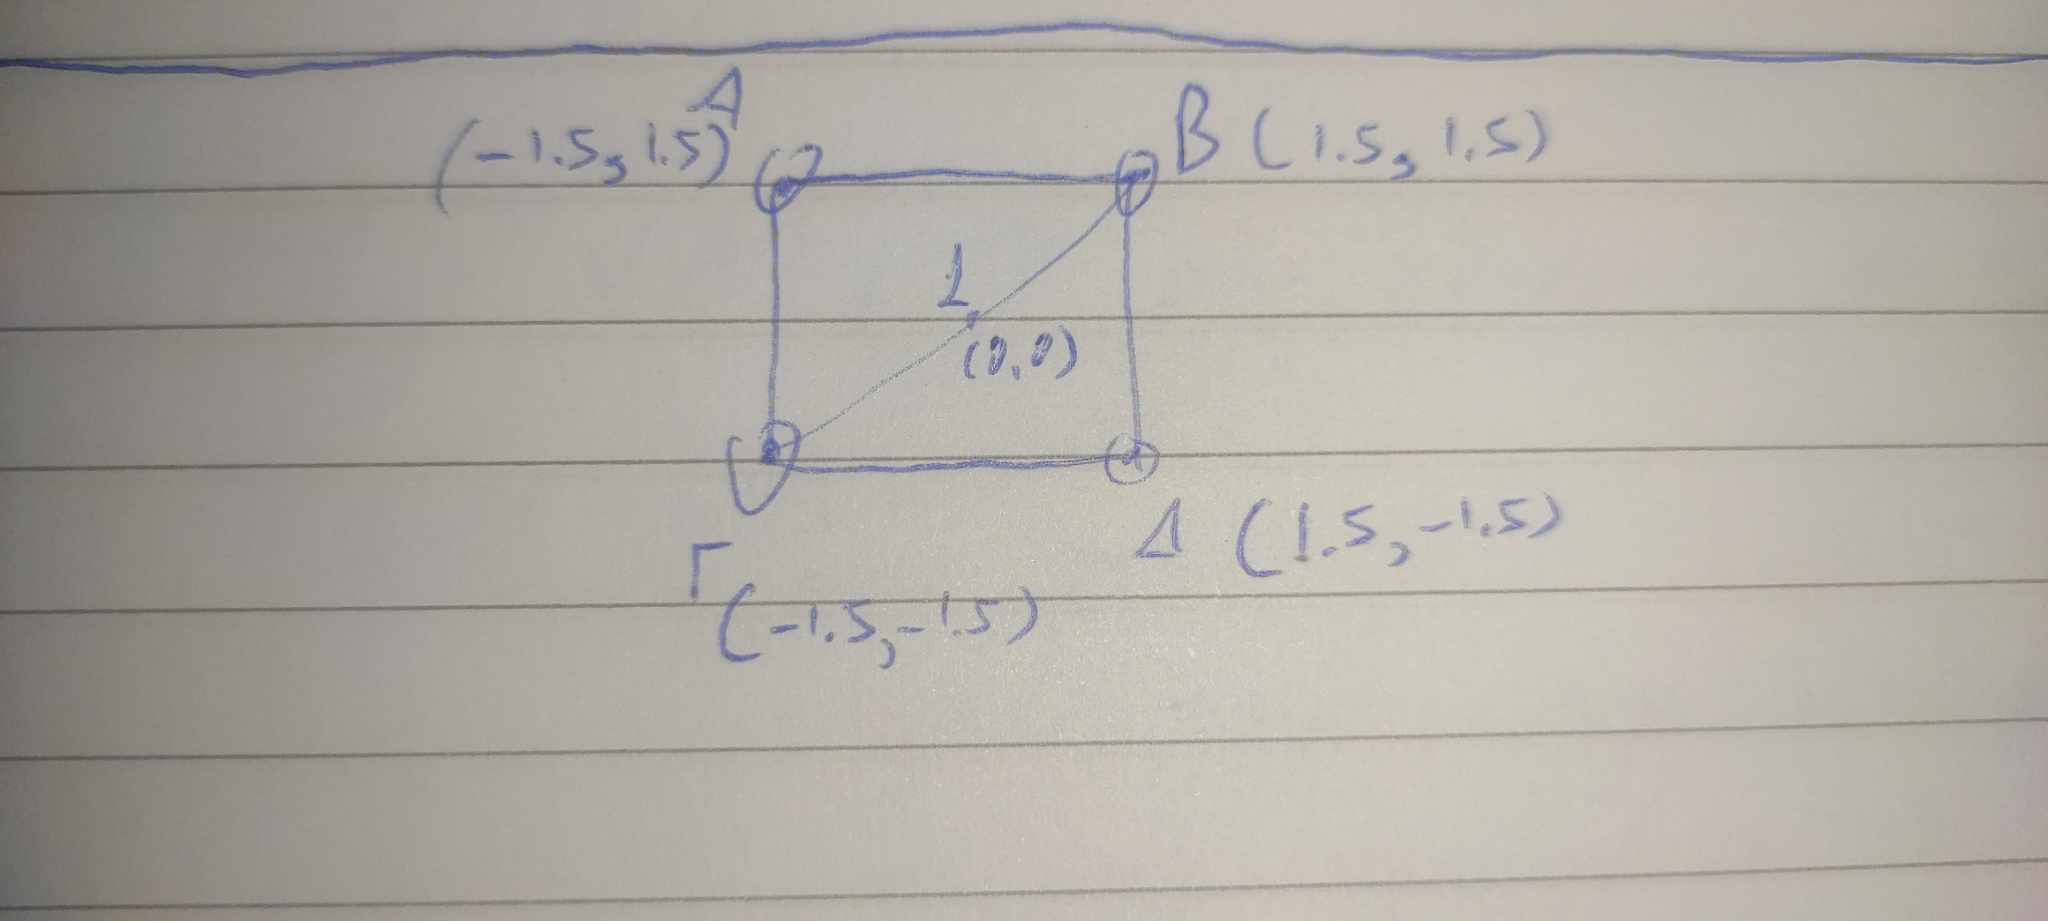 Α
(-1.5, 1.5)
Β (1.5, 1.5)
1
(0,0)
Γ
(-1.5,-1.5)
Δ (1.5,-1.5)